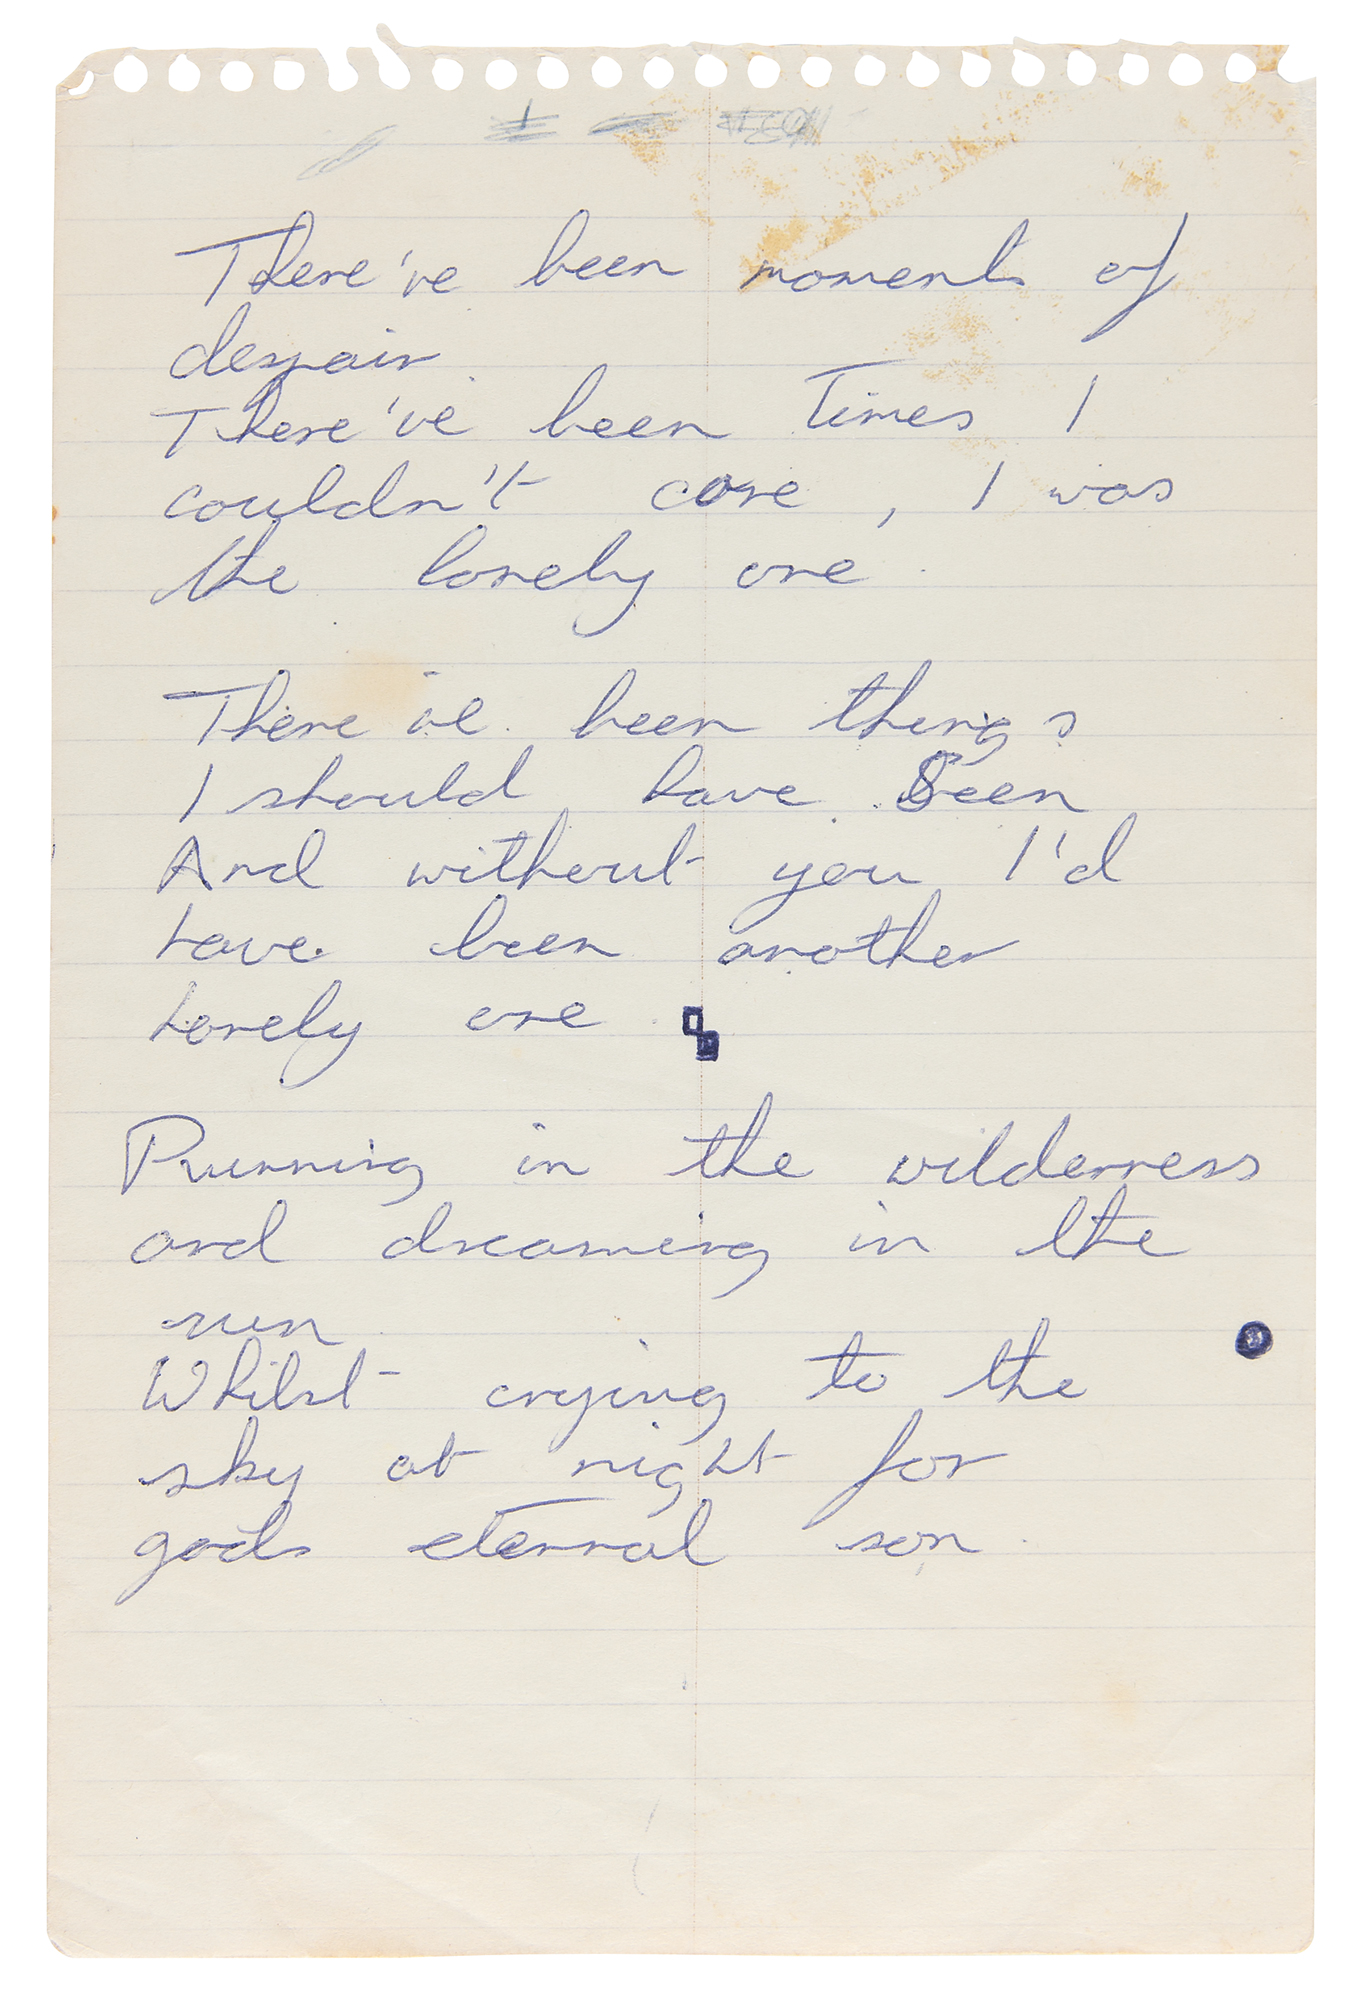 There've been moments of
despair
There've been Times I
couldn't care, I was
the lonely one
There've been things
I should have Seen
And without you I'd
have been another
lonely one
Running in the wilderness
and dreaming in the
sun
Whilst crying to the
sky at night for
gods eternal son